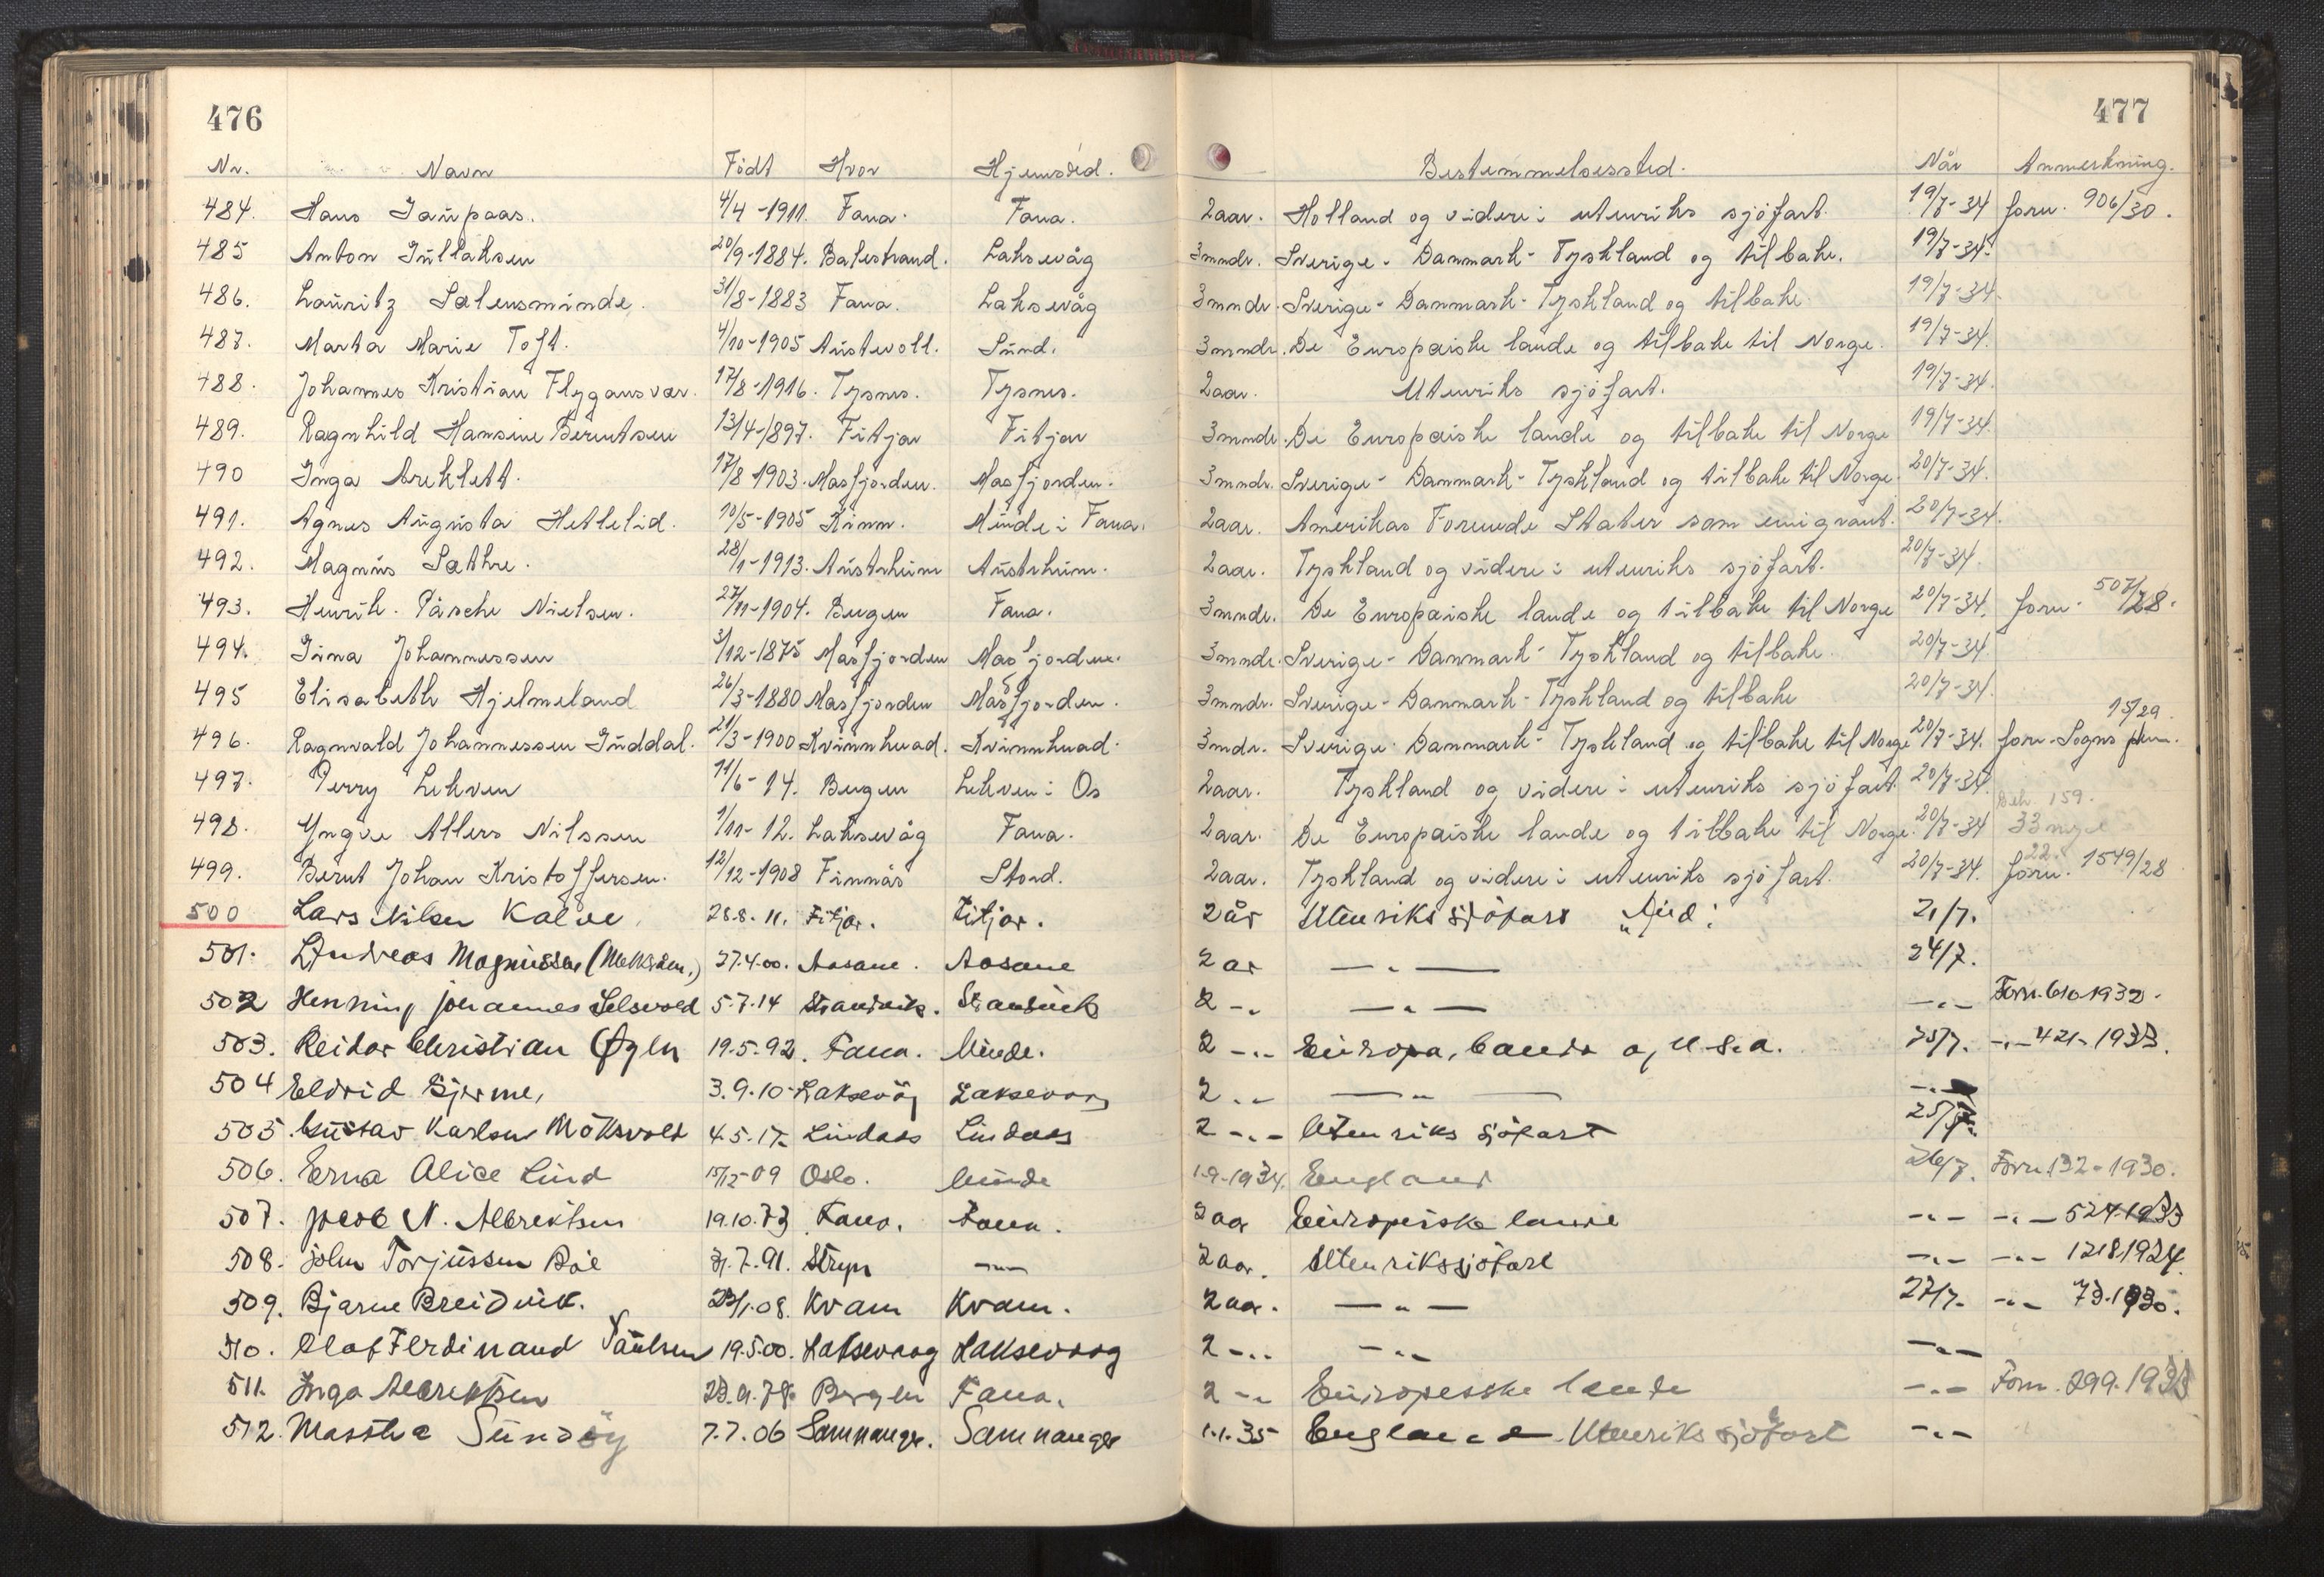 476
477
Nr. Navn Födt Hvor Hjemsted. Bestemmelsessted. Når Anmerkning.
484. Hans Taüpaas. 4/4-1911. Fana. Fana. 2aar. Holland og videre i utenriks sjöfart. 19/7-34 forn. 906/30.
485 Anton Jüllaksen 20/9-1884. Balestrand. Laksevåg 3mndr. Sverige - Danmark - Tyskland og tilbake. 19/7-34.
486. Laüritz Sælensminde. 31/8-1883 Fana. Laksevåg 3mndr. Sverige - Danmark - Tyskland og tilbake 19/7-34.
487. Marta Marie Toft. 4/10-1905 Aüstevoll. Sünd. 3mndr. De Europæiske lande og tilbake til Norge. 19/7-34.
488. Johannes Kristian Flygansvær. 17/8-1916. Tysnes. Tysnes. 2aar. Utenriks sjöfart. 19/7-34.
489. Ragnhild Hansine Berentsen 13/4-1897. Fitjar Fitjar 3mndr. De Europæiske lande og tilbake til Norge 19/7-34.
490 Inga Areklett. 17/8 1903. Masfjorden. Masfjorden. 3mndr. Sverige - Danmark - Tyskland og tilbake til Norge. 20/7-34.
491. Agnes Aügüsta Hetlelid. 10/5-1905 Kinn. Minde i Fana. 2aar. Amerikas Forenede Stater som emigrant. 20/7-34.
492. Magnüs Sæthre. 28/1-1913. Aüstrheim Aüstrheim. 2aar. Tyskland og videre i utenriks sjöfart. 20/7-34.
493. Henrik. Påsche Nielsen. 27/11-1904. Bergen Fana. 3mndr. De Europæiske lande og tilbake til Norge 20/7-34. forn. 507/28.
494. Jina Johannessen 3/12-1875 Masfjorden Masfjorden. 3mndr. Sverige - Danmark - Tyskland og tilbake. 20/7-34.
495 Elisabeth Hjelmeland 26/3-1880 Masfjorden Masfjorden. 3mndr. Sverige - Danmark - Tyskland og tilbake 20/7-34.
15/29.
496. Ragnvald Johannessen Güddal. 21/3-1900 Kvinnherad. Kvinnherad. 3mdr. Sverige - Danmark - Tyskland og tilbake til Norge 20/7-34. forn. Sogns
497. Perry Lekven 11/6-14. Bergen Lekven i Os 2aar. Tyskland og videre i utenriks sjöfart. 20/7-34.
159.
498. Yngve Allers Nilssen 1/11-12. Laksevåg Fana. 2aar. De Europæiske lande og tilbake til Norge. 20/7-34 33 nye
22.
499. Berut Johan Kristoffersen. 12/12-1908 Finnås Stord. 2aar. Tyskland og videre i utenriks sjöfart. 20/7-34. forn. 1549/28
500 Lars Nilsen Kalve. 28.8.11. Fitjar. Fitjar. 2år Utenriks sjöfart 21/7.
501. Andreas Magnüssen 27.4.00. Aasane. Aasane 2 ar — " — 24/7.
502 Henning Johannes Selsvold 5.7.14 Strandvik. Strandvik 2 -"- — " — -"- Forn. 610 1932.
503. Reidar Christian Øgln 19.5.92. Fana. Minde. 2 -"- Eüropa, Canada o, U.S.A. 25/7. -"- 421-1933.
504 Eldrid Bjerme, 3.9.10 Laksevåg Laksevaag 2 -"- — " — -"-
505. Güstav Karlsen Möksvold 4.5.17. Lindaas Lindaas 2 -"- Utenriks sjöfart 25/7.
506. Erna Alice Lind 15/12-09 Oslo. Minde 1-9-1934. England 26/7. Forn. 132-1930.
507. Jacob N. Albrektsen 19.10.73 Fana. Fana. 2 aar Eüropeiske lande -"- -"- 524-1933
508. John Torjüssen Böe 31.7.91. Stryn -"- 2 aar. Utenrikssjöfart -"- -"- 1218.1924.
509. Bjarne Breidvik. 23/1.08. Kvam Kvam. 2 aar. — " — 27/7. -"- 73.1930.
510. Olaf Ferdinand Paülsen 19.5.00. Laksevaag Laksevaag 2 -"- -"- -"-
511. Inga Albrektsen 23.9.78. Bergen Fana. 2 -"- Eüropeiske lande -"- Forn. 299.1933
512. Martha Sündöy 7.7.06 Samnanger. Samnanger 1.1.35 England Utenriks sjöfart -"-